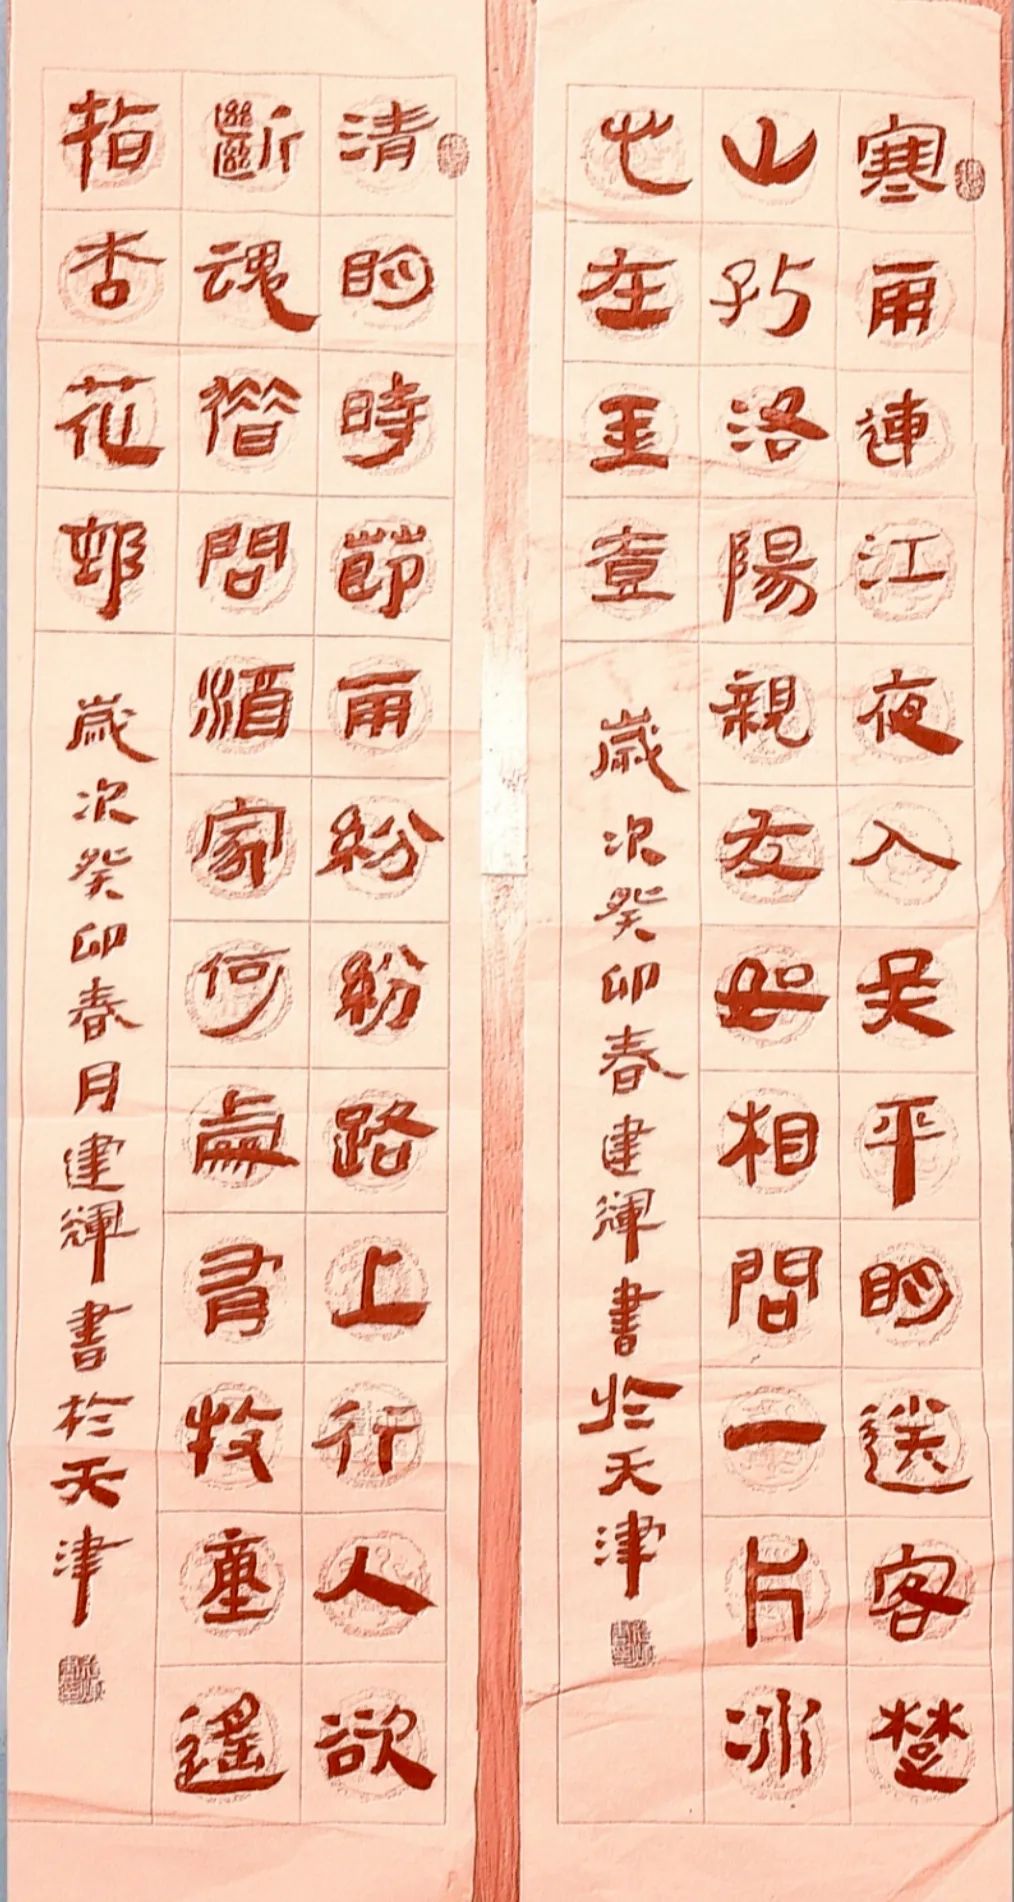 寒雨連江夜入吴平眀送客楚
山孤洛陽親友如相問一片冰
心在玉壺
歲次癸卯春建輝書於天津
清眀時節雨紛紛路上行人欲
斷魂借問酒家何處有牧童遥
指杏花邨
歲次癸卯春月建輝書於天津